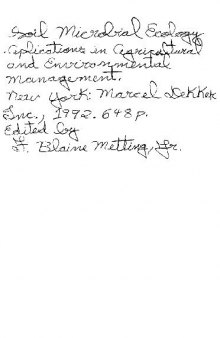 Soil Microbial Ecology
Aplications in Agricultural
and Environmental
Management.
New York: Marcel Dekker
Inc., 1992. 648 p.
Edited by
F. Blaine Metting, Jr.